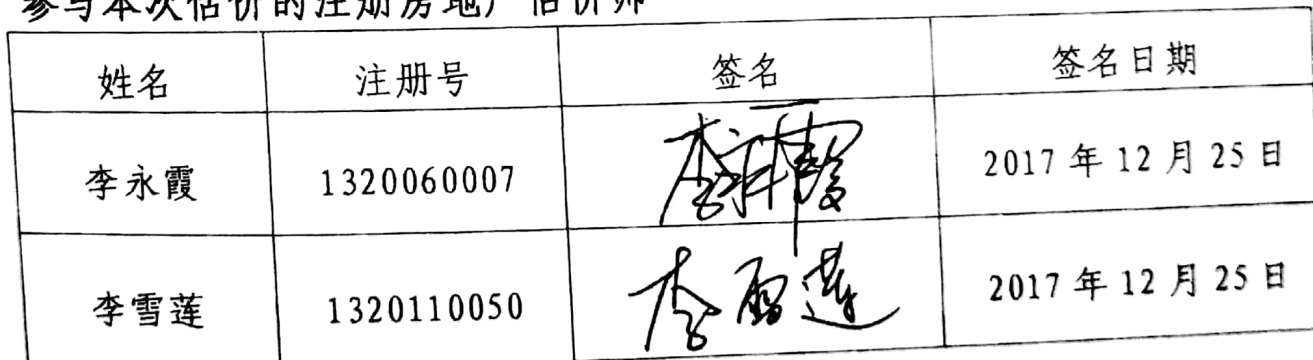 参与本次估价的注册房地产估价师
姓名 注册号 签名 签名日期
李永霞 1320060007 李永霞 2017 年 12 月 25 日
李雪莲 1320110050 李雪莲 2017 年 12 月 25 日